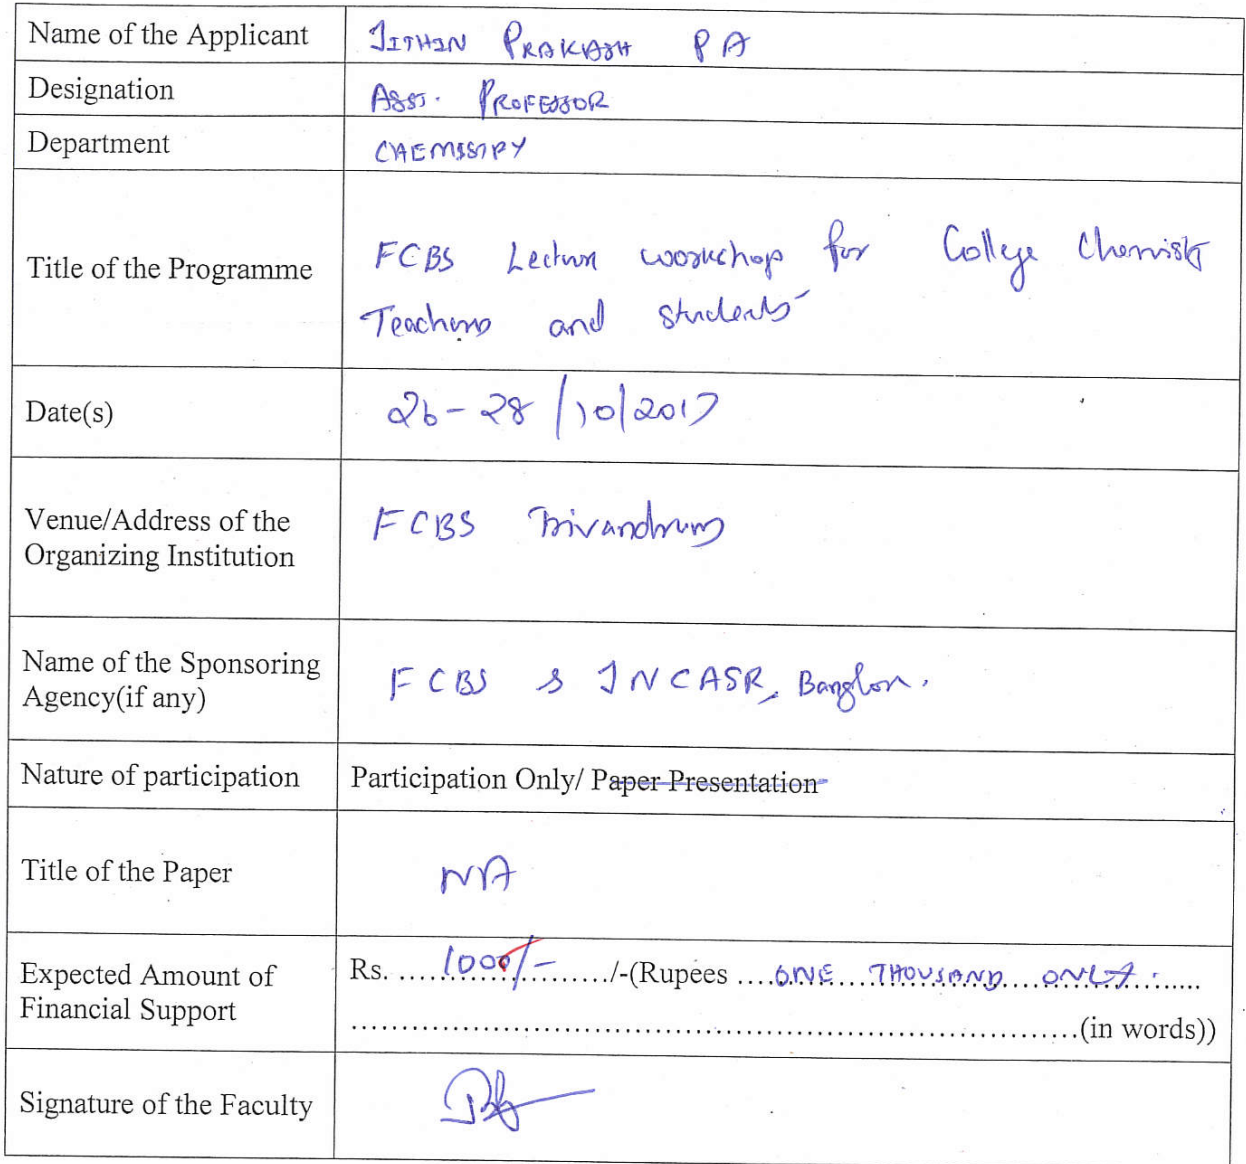 Name of the Applicant JITHIN PRAKASH P A
Designation ASST. PROFESSOR
Department CHEMISTRY
Title of the Programme FCBS Lecture workshop for College Chemistry
Teachers and students
Date(s) 26-28/10/2017
Venue/Address of the
Organizing Institution FCBS Trivandrum
Name of the Sponsoring
Agency(if any) FCBS & JNCASR, Banglore.
Nature of participation Participation Only/ Paper Presentation
Title of the Paper NA
Expected Amount of
Financial Support Rs. ....1000/-........../-(Rupees ....ONE THOUSAND ONLY......
..........................................................................(in words))
Signature of the Faculty